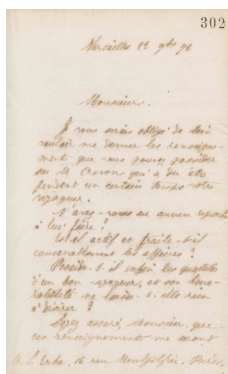 302
Versailles 22 9bre 98
Monsieur.
Je vous serais obligé de bien
vouloir me donner les renseigne-
ments que vous pouvez posséder
sur M. qui a dû être
pendant un certain temps votre
voyageur.
N'avez-vous eu aucun reproche
à lui faire?
Est-il actif et traite-t-il
convenablement les affaires?
Possède-t-il enfin les qualités
d'un bon voyageur, et son hono-
rabilité ne laisse-t-elle rien
à désirer?
Soyez assuré, Monsieur, que
ces renseignements ne seront
16 rue Paris.